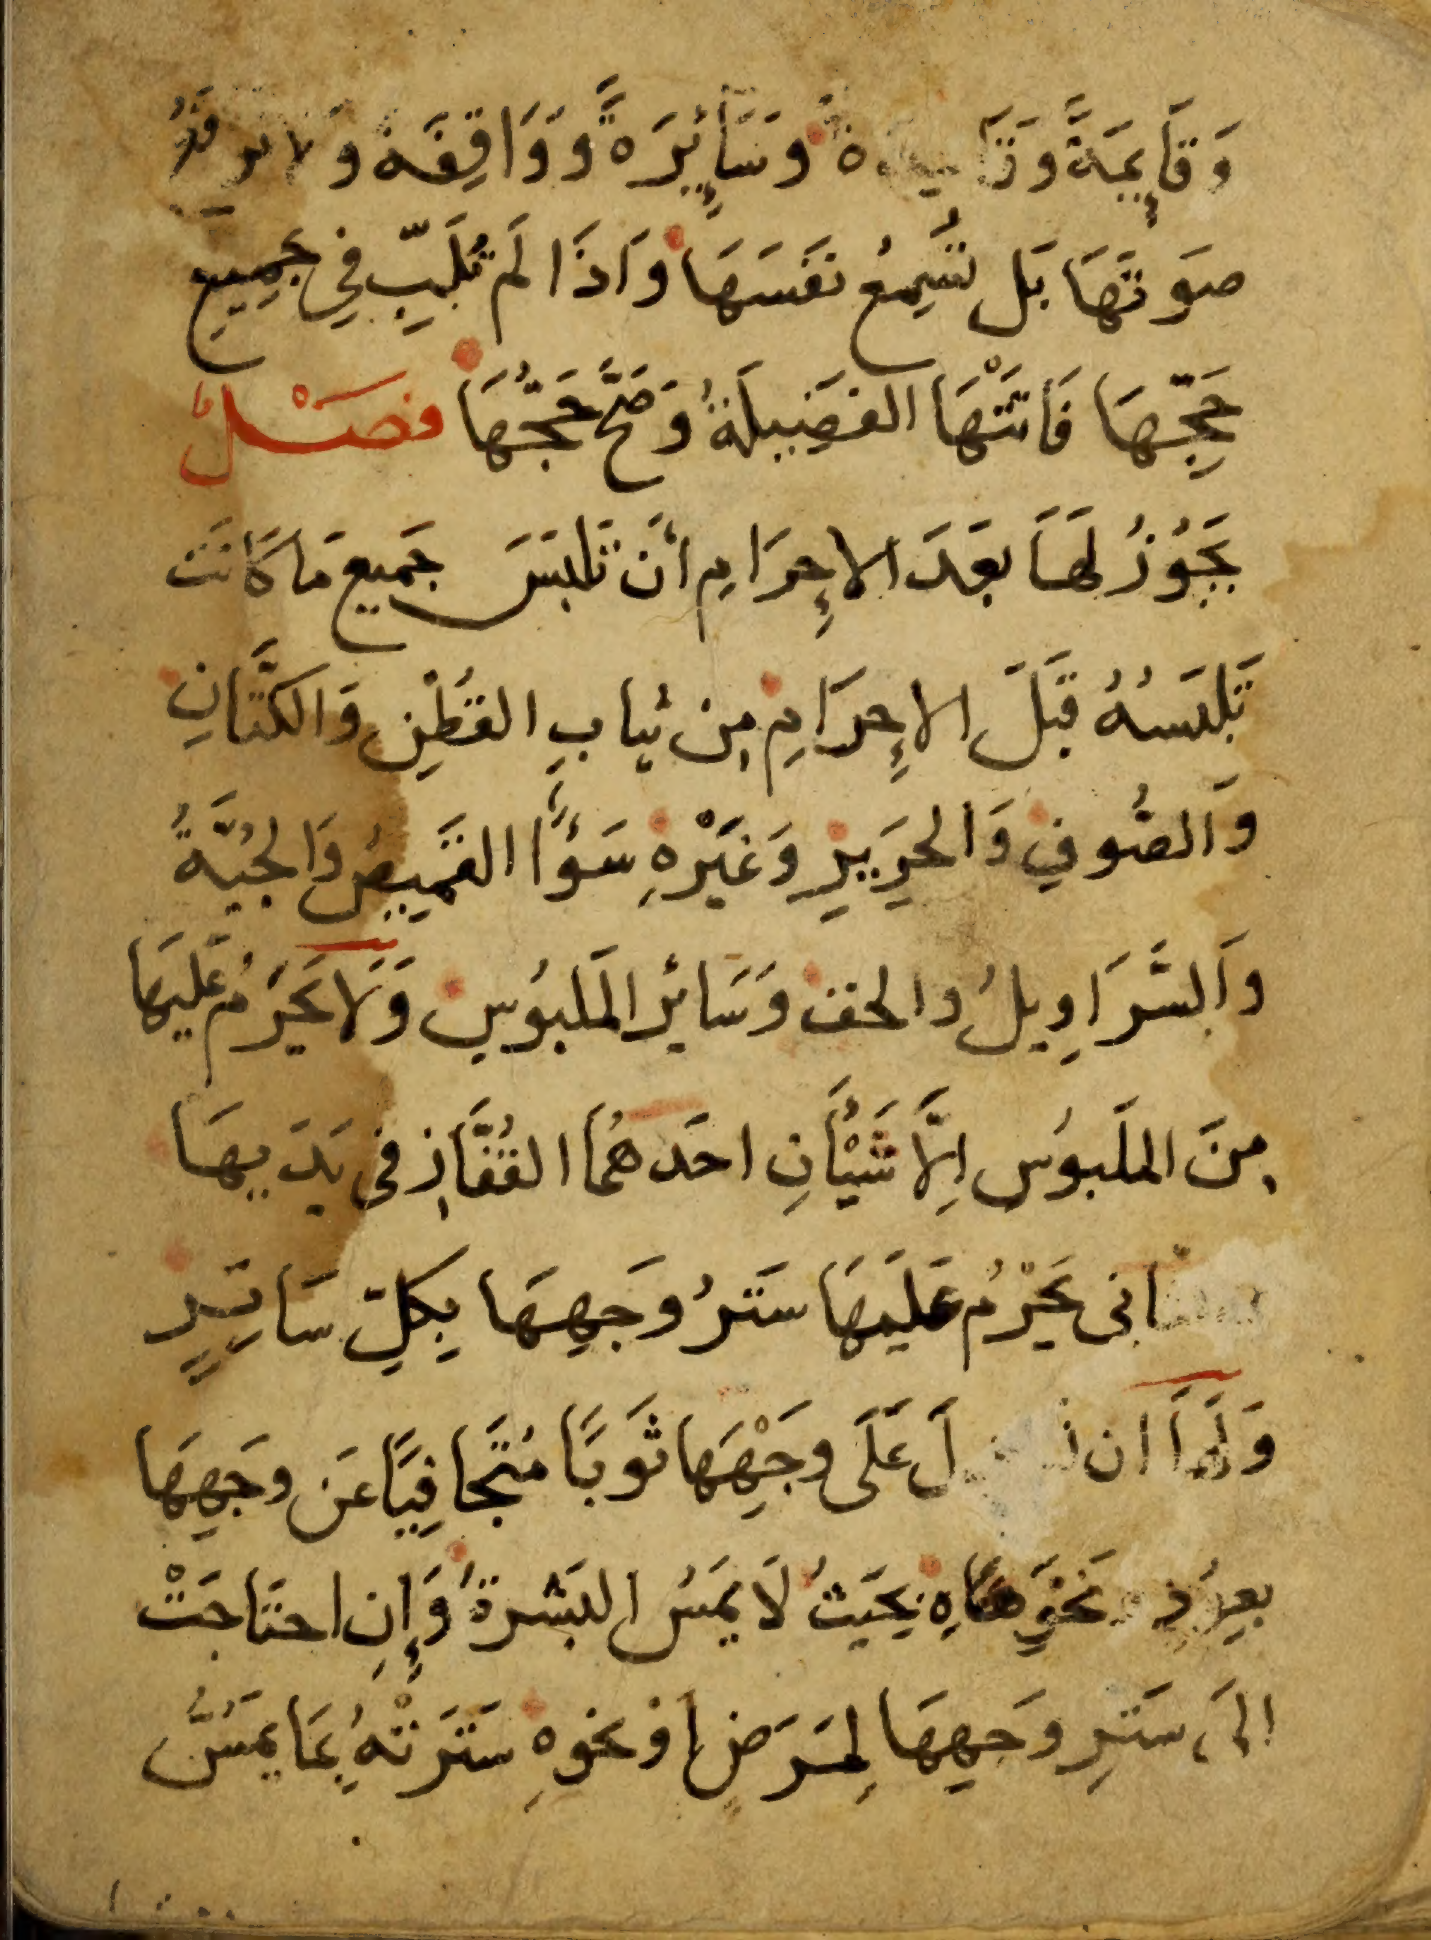 وَقَائِمَةً وَسَائِرَةً وَوَاقِفَة وَلا ترفَعُ
صَوتَهَا بَل تُسَمِعُ نَفسَهَا وَاذَا لَم تُلَبِّ فِي جَمِيعِ
حَجِّهَا فَاتَتْهَا الفَضِيلَةُ وَصَحَّ حَجُّهَا فصَْلٌ
يَجُوزُ لَهَا بَعدَ الاِحرَامِ أَن تَلبَسَ جَمِيع مَا كَانَت
تَلبَسُهُ قَبلَ الاِحرَامِ مِن ثِيابِ القُطْنِ وَالكَتَّانِ
وَالصُّوفِ وَالحَرِيرِ وَغَيْرِهِ سَوَآءً القَمِيصُ وَالجُبَّةُ
وَالسَّرَاوِيلُ والخف وَسَائِر المَلبُوسِ وَلَا يَحرُمُ عَلَيهَا
مِنَ المَلبُوسِ اِلَّا شَيْئَانِ احَدهُمَا القُفَّاز فى يَدَيهَا
الثانى يَحْرُم عَلَيهَا سَترُ وَجهِهَا بِكلِّ سَاتِرٍ
وَلَهَا ان عَلَى وَجْهِهَا ثَوبًا مُتَجَافِيًا عَن وَجهِهَا
بِعُودٍ وَنَحوِهِ بِحَيثُ لَا يَمَسُ البَشرةُ وَإِنِ احتَاجَتْ
الىَ سَترِ وَجهِهَا لِمَرَضٍ اَو نحوِهِ سَتَرَتْهُ بِمَا يَمَسُّ